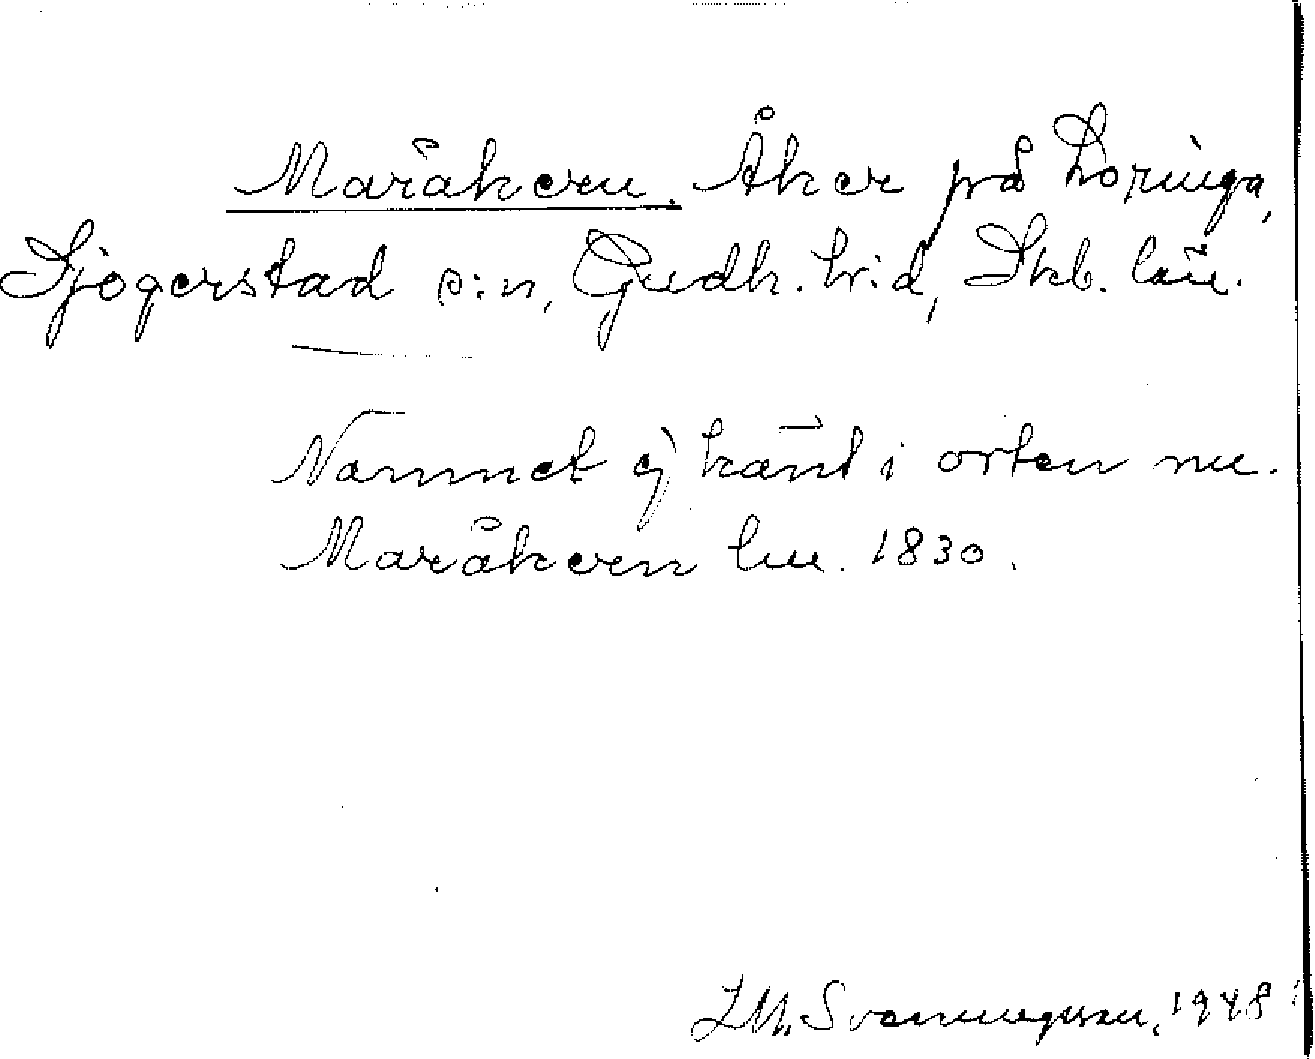 Maråkern. Åker på Loringa,
Sjogerstad s:n, Gudh. h:d, Skb. län.
Namnet ej känt i orten nu.
Maråkern lm. 1830.
L.M. Svanungsson, 1948